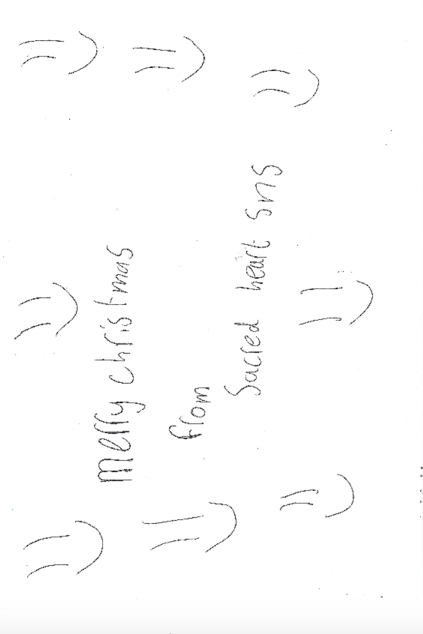 merry christmas
from
Sacred heart sns